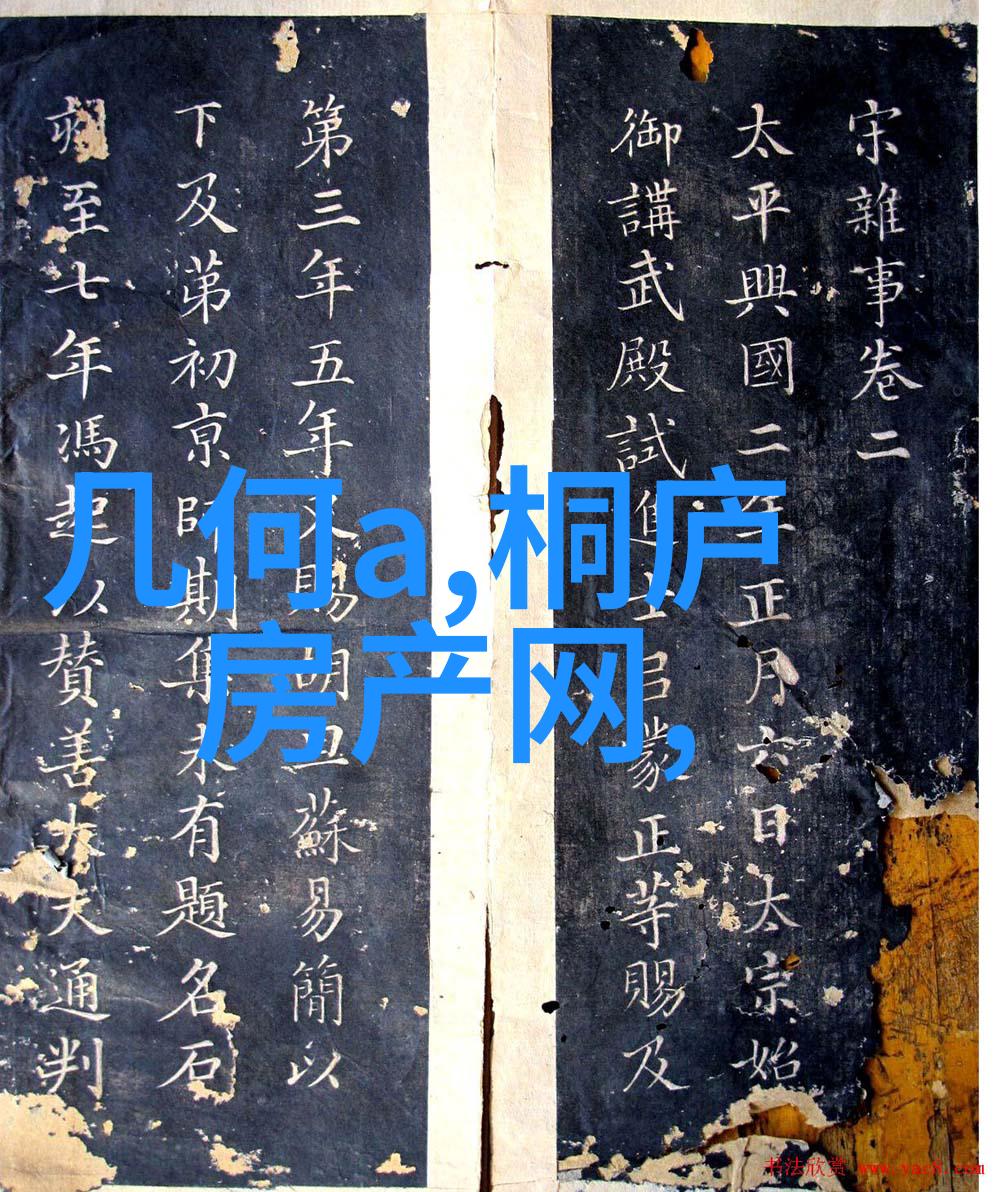 宋雜事卷二
太平興國二年正月六日太宗始
御講武殿試進士呂蒙正等賜及
第三年五年又賜胡旦蘇易簡以
下及第初京師期集未有題名石
刻至七年馮起以賛善大夫通判
几何a,桐庐
房产网,
书法欣赏 www.yac8.com